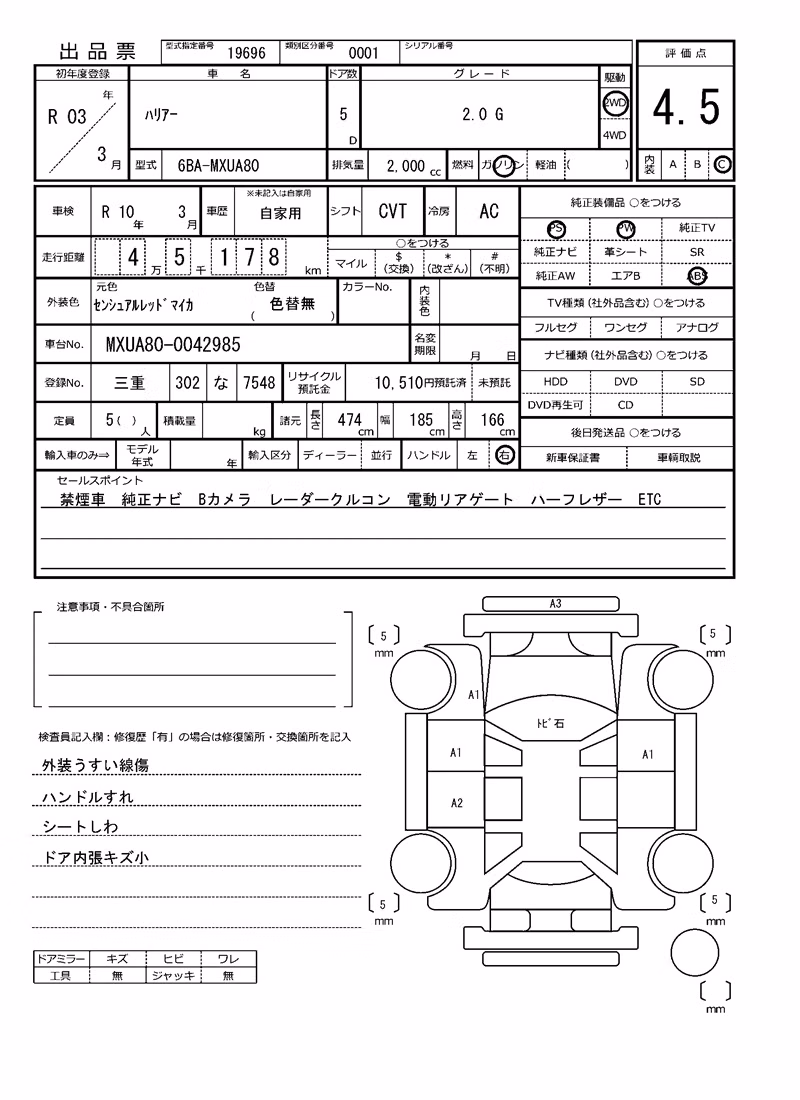 出品票 型式指定番号 19696 類別区分番号 0001 シリアル番号
評価点
初年度登録 車名 ドア数 グレード 駆動
年
R 03 ハリアー 5 2.0 G 2WD 4.5
D 4WD
3 月 型式 6BA-MXUA80 排気量 2,000 cc 燃料 ガソリン 軽油 ( ) 内装 A B C
車検 R 10 年 3 月 車歴 ※未記入は自家用 自家用 シフト CVT 冷房 AC
純正装備品 ○をつける
PS PW 純正TV
純正ナビ 革シート SR
純正AW エアB ABS
走行距離 4 万 5 千 1 7 8 km ○をつける
マイル $ (交換) * (改ざん) # (不明)
外装色 元色 センシュアルレッドマイカ 色替 ( 色替無 ) カラーNo. 内装色
TV種類(社外品含む)○をつける
フルセグ ワンセグ アナログ
車台No. MXUA80-0042985 名変期限 月 日
ナビ種類(社外品含む)○をつける
HDD DVD SD
DVD再生可 CD
登録No. 三重 302 な 7548 リサイクル預託金 10,510円預託済 未預託
定員 5( ) 人 積載量 kg 諸元 長さ 474 cm 幅 185 cm 高さ 166 cm
後日発送品 ○をつける
新車保証書 車輌取説
輸入車のみ⇒ モデル年式 年 輸入区分 ディーラー 並行 ハンドル 左 右
セールスポイント
禁煙車 純正ナビ Bカメラ レーダークルコン 電動リアゲート ハーフレザー ETC
注意事項・不具合箇所
検査員記入欄：修復歴「有」の場合は修復箇所・交換箇所を記入
外装うすい線傷
ハンドルすれ
シートしわ
ドア内張キズ小
ドアミラー キズ ヒビ ワレ
工具 無 ジャッキ 無
A3
5 mm
5 mm
A1
トビ石
A1 A1
A2
5 mm
5 mm
mm